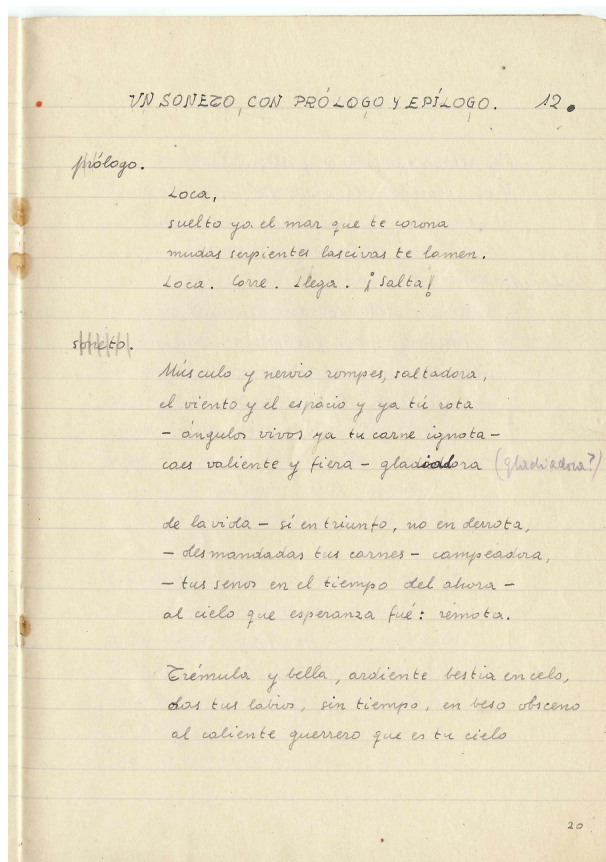 UN SONETO, CON PRÓLOGO Y EPÍLOGO. 12.
prólogo.
Loca,
suelto ya el mar que te corona
mudas serpientes lascivas te lamen.
Loca. Corre. Llega. ¡Salta!
soneto.
Músculo y nervio rompes, saltadora,
el viento y el espacio y ya tú rota
- ángulos vivos ya tu carne ignota -
caes valiente y fiera - gladiadora (gladiadora?)
de la vida - sí en triunfo, no en derrota,
- desmandadas tus carnes - campeadora,
- tus senos en el tiempo del ahora -
al cielo que esperanza fué: remota.
Trémula y bella, ardiente bestia en celo,
das tus labios, sin tiempo, en beso obsceno
al caliente guerrero que es tu cielo
20